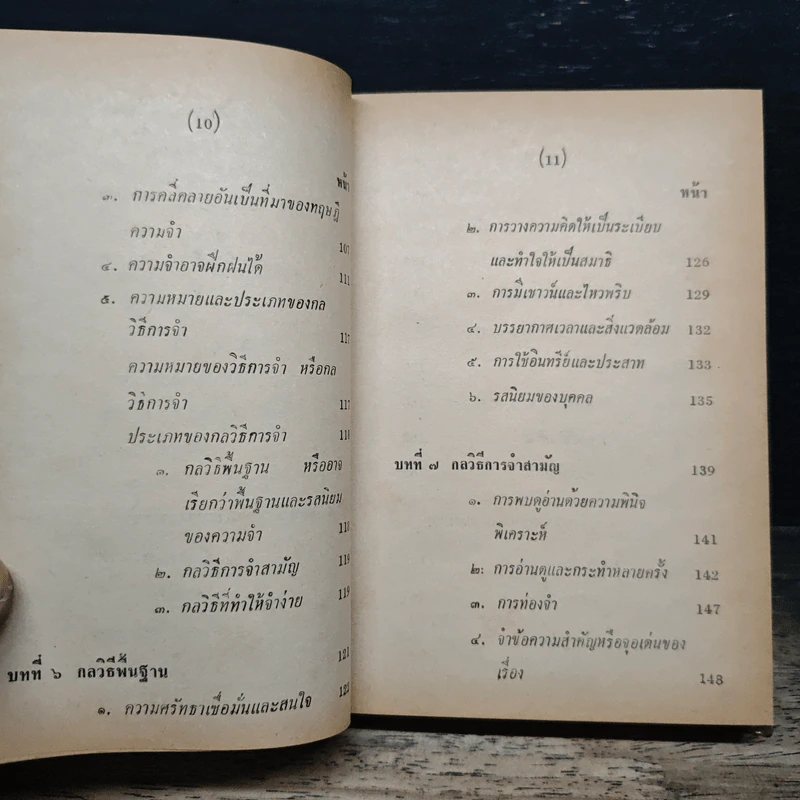 (10)
หน้า
๓. การคลี่คลายอันเป็นที่มาของทฤษฎี
ความจำ 107
๔. ความจำอาจฝึกฝนได้ 111
๕. ความหมายและประเภทของกล
วิธีการจำ 117
ความหมายของวิธีการจำ หรือกล
วิธีการจำ 117
ประเภทของกลวิธีการจำ 118
๑. กลวิธีพื้นฐาน หรืออาจ
เรียกว่าพื้นฐานและรสนิยม
ของความจำ 118
๒. กลวิธีการจำสามัญ 119
๓. กลวิธีที่ทำให้จำง่าย 119
บทที่ ๖ กลวิธีพื้นฐาน 121
๑. ความศรัทธาเชื่อมั่นและสนใจ
(11)
หน้า
๒. การวางความคิดให้เป็นระเบียบ
และทำใจให้เป็นสมาธิ 126
๓. การมีเชาวน์และไหวพริบ 129
๔. บรรยากาศเวลาและสิ่งแวดล้อม 132
๕. การใช้อินทรีย์และประสาท 133
๖. รสนิยมของบุคคล 135
บทที่ ๗ กลวิธีการจำสามัญ 139
๑. การพบดูอ่านด้วยความพินิจ
พิเคราะห์ 141
๒. การอ่านดูและกระทำหลายครั้ง 142
๓. การท่องจำ 147
๔. จำข้อความสำคัญหรือจุดเด่นของ
เรื่อง 148